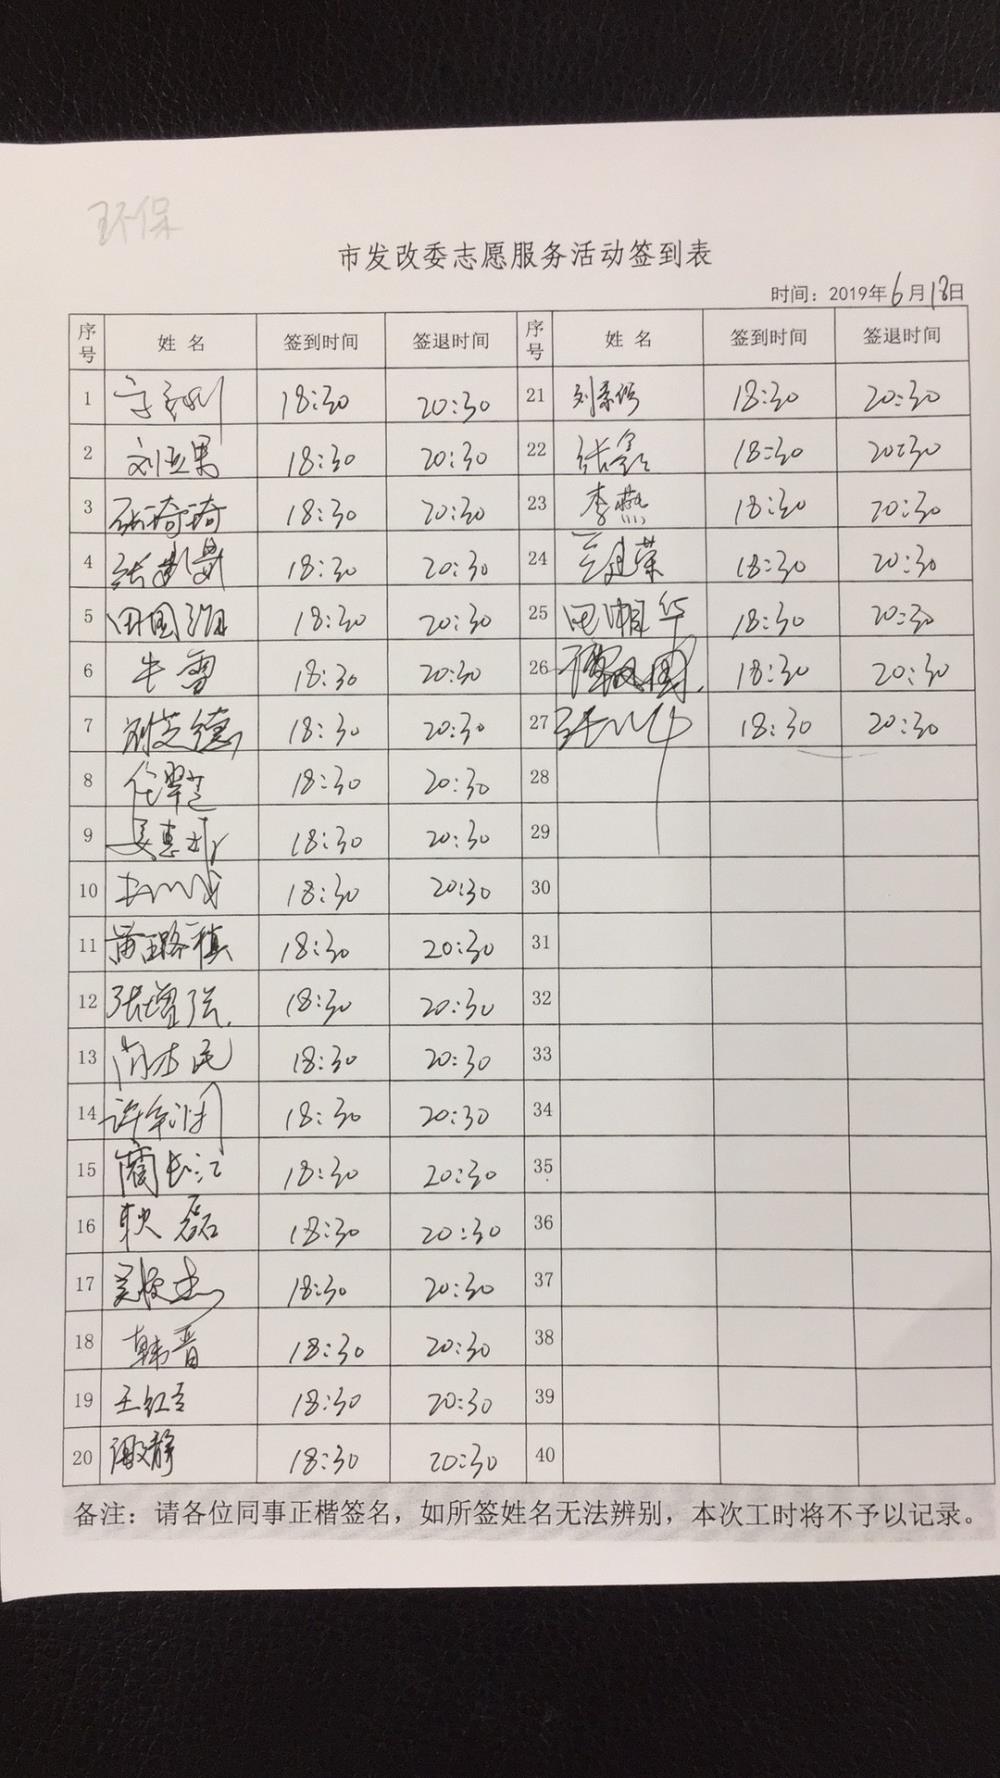 环保
市发改委志愿服务活动签到表
时间：2019年6月18日
序号 姓 名 签到时间 签退时间 序号 姓 名 签到时间 签退时间
1 18:30 20:30 21 18:30 20:30
2 刘亚男 18:30 20:30 22 张鑫 18:30 20:30
3 张琦琦 18:30 20:30 23 李燕 18:30 20:30
4 18:30 20:30 24 兰建荣 18:30 20:30
5 田国强 18:30 20:30 25 田湘华 18:30 20:30
6 牛雪 18:30 20:30 26 18:30 20:30
7 18:30 20:30 27 18:30 20:30
8 18:30 20:30 28
9 18:30 20:30 29
10 18:30 20:30 30
11 18:30 20:30 31
12 张增强 18:30 20:30 32
13 18:30 20:30 33
14 18:30 20:30 34
15 蔺长江 18:30 20:30 35
16 耿磊 18:30 20:30 36
17 18:30 20:30 37
18 韩晋 18:30 20:30 38
19 18:30 20:30 39
20 18:30 20:30 40
备注：请各位同事正楷签名，如所签姓名无法辨别，本次工时将不予以记录。